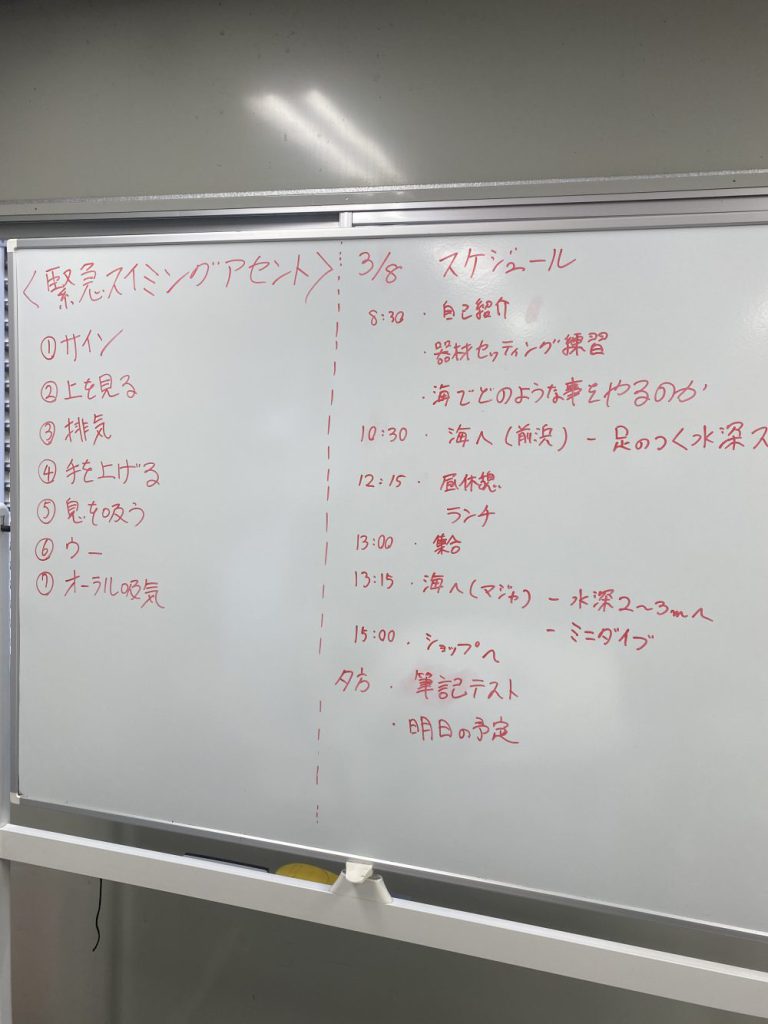 〈緊急スイミングアセント〉
① サイン
② 上を見る
③ 排気
④ 手を上げる
⑤ 息を吸う
⑥ ウー
⑦ オーラル吸気
3/8 スケジュール
8:30 ・自己紹介
・器材セッティング練習
・海でどのような事をやるのか
10:30 ・海へ(前浜) - 足のつく水深ス
12:15 ・昼休憩
ランチ
13:00 ・集合
13:15 ・海へ(マジャ) - 水深2〜3mへ
- ミニダイブ
15:00 ・ショップへ
夕方 ・筆記テスト
・明日の予定